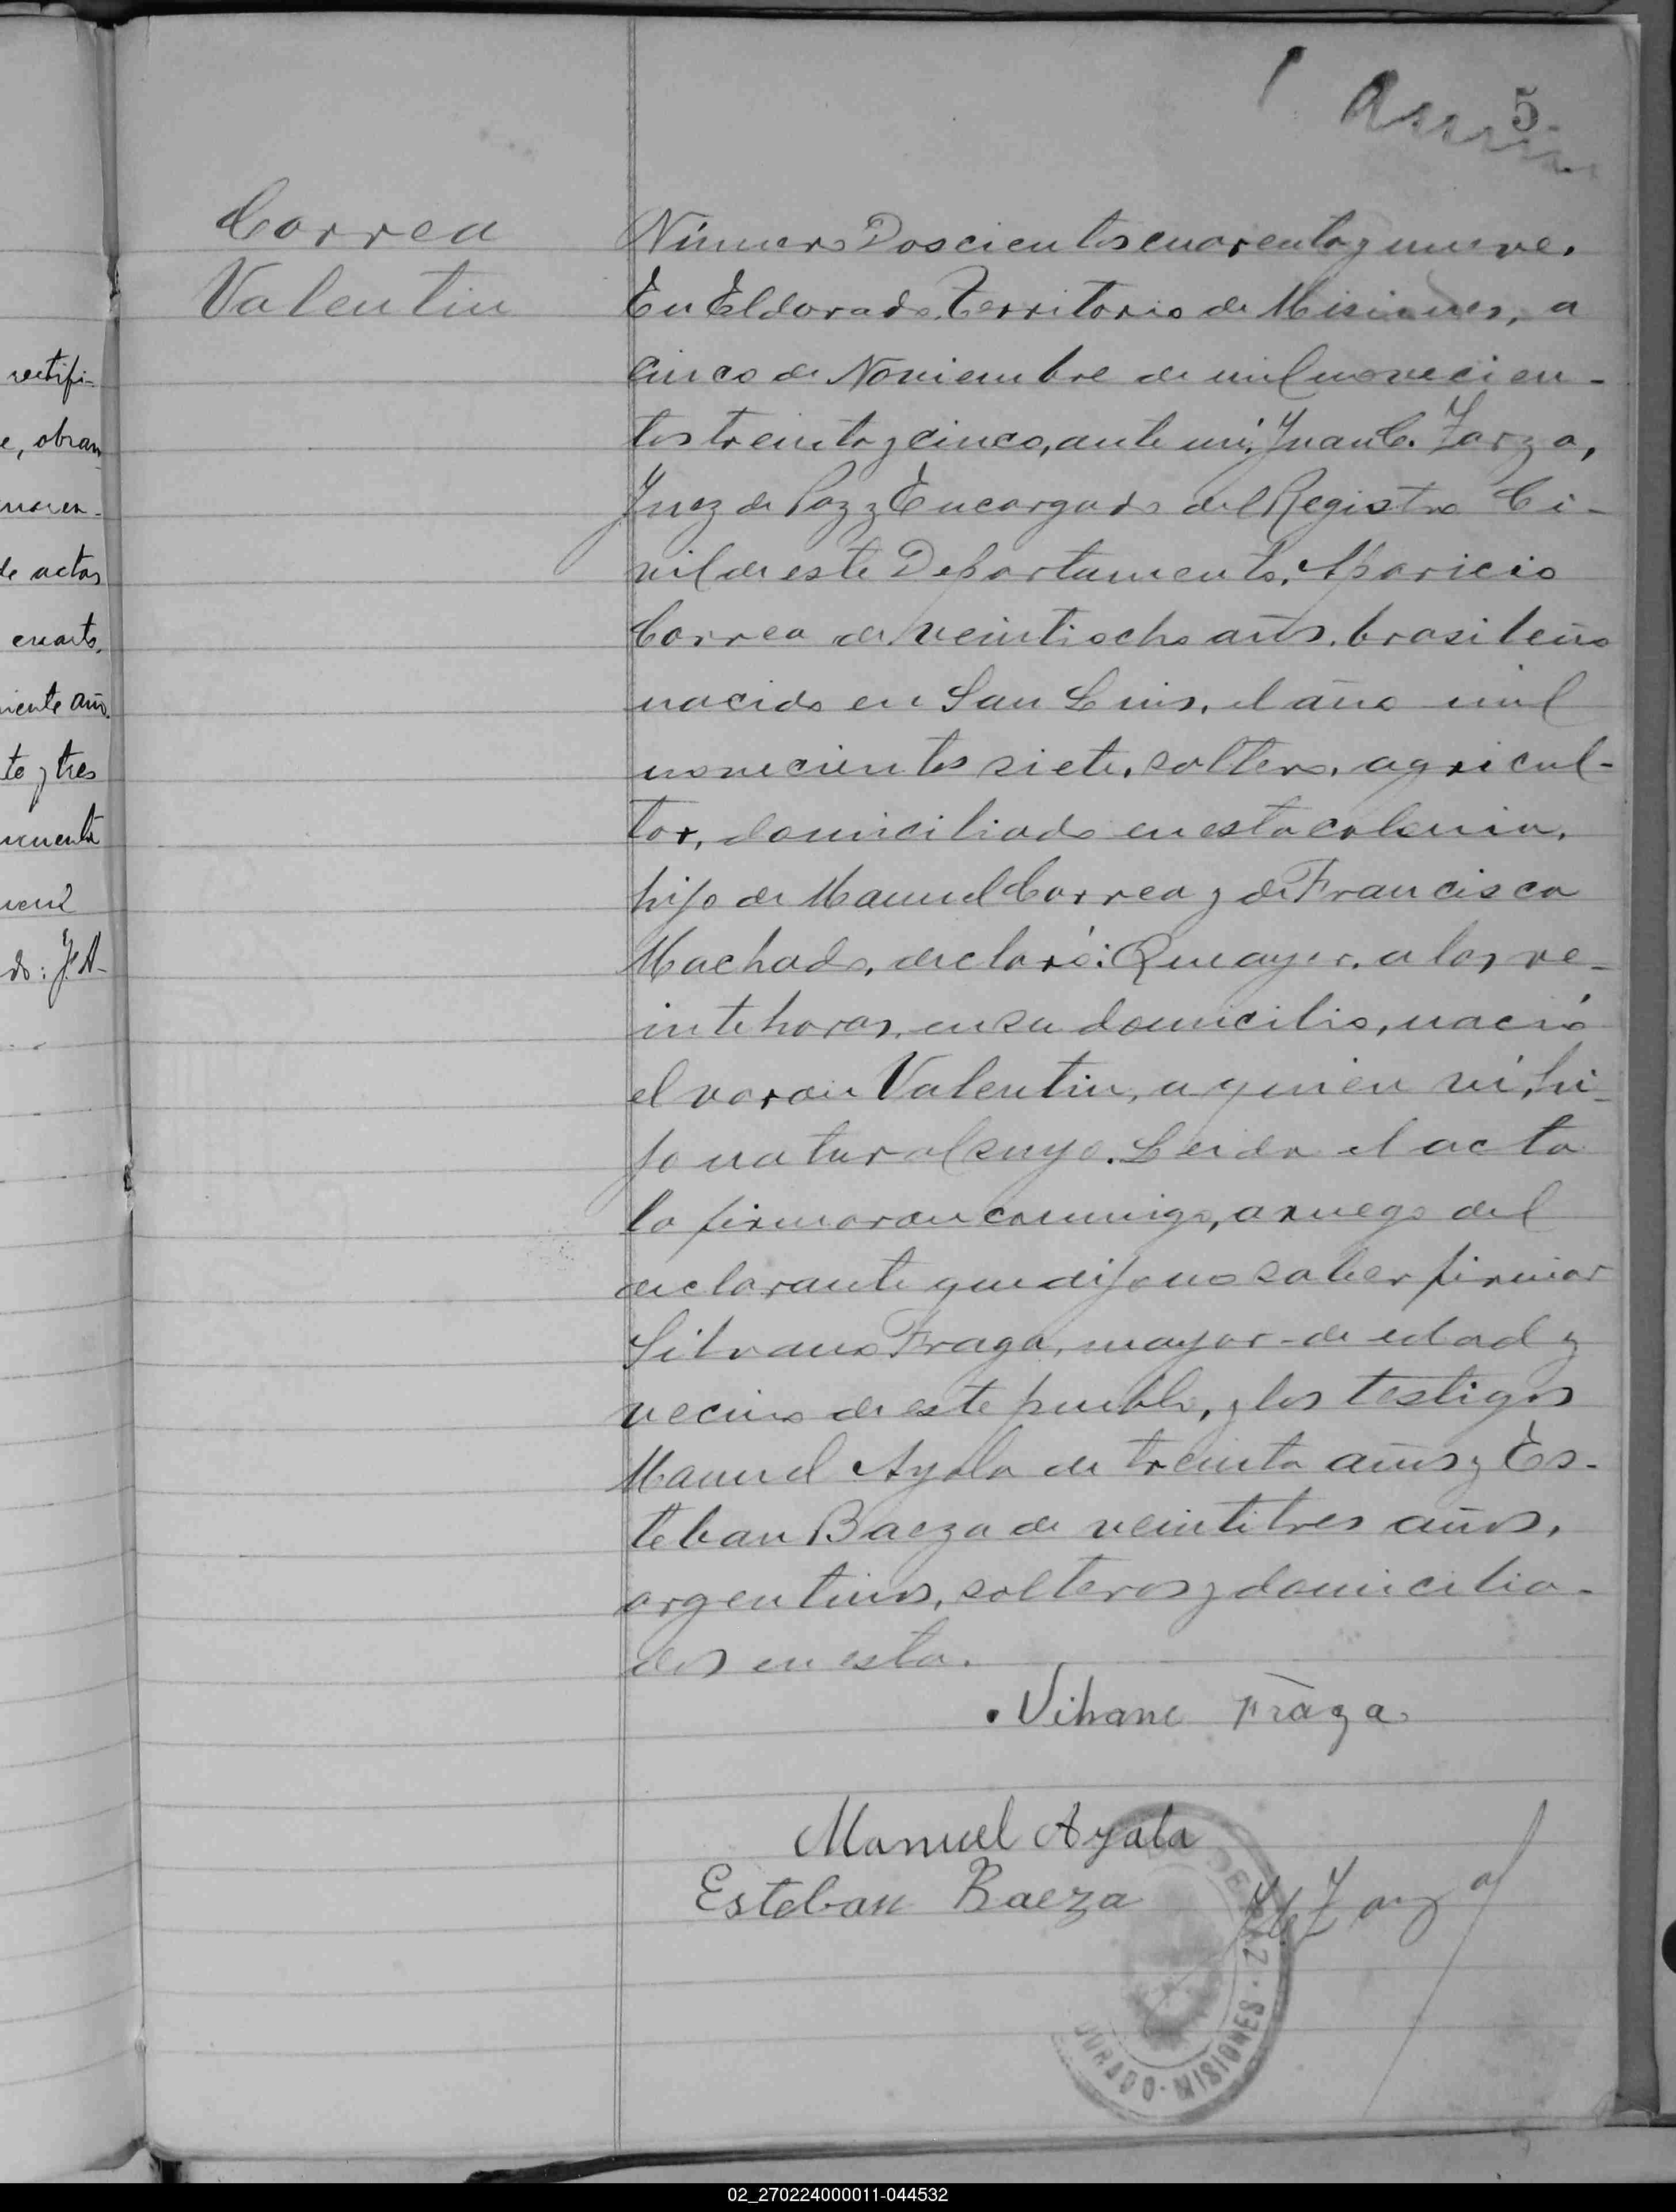 5.
Correa
Valentin
Número Doscientos cuarenta y nueve.
En Eldorado, Territorio de Misiones, a
cinco de Noviembre de mil novecien-
tos treinta y cinco, ante mí, Juan C. Zarza,
Juez de Paz y Encargado del Registro Ci-
vil de este Departamento, Aparicio
Correa de veintiocho años, brasileño
nacido en San Luis, el año mil
novecientos siete, soltero, agricul-
tor, domiciliado en esta colonia,
hijo de Manuel Correa y de Francisca
Machado, declaró: Que ayer, a las ve-
inte horas, en su domicilio, nació
el varon Valentin, a quien ví, hi-
jo natural suyo. Leida el acta
la firmaron conmigo, a ruego del
declarante que dijo no saber firmar
Silvano Fraga, mayor de edad y
vecino de este pueblo, y los testigos
Manuel Ayala de treinta años y Es-
teban Baeza de veintitres años,
argentinos, solteros y domicilia-
dos en esta.
Silvano Fraga
Manuel Ayala
Esteban Baeza
JCZarza
DORADO - MISIONES
rectifi-
e, obran
de actas
cuarto,
niente año.
te y tres
ncuenta
do: J. A-
02_270224000011-044532